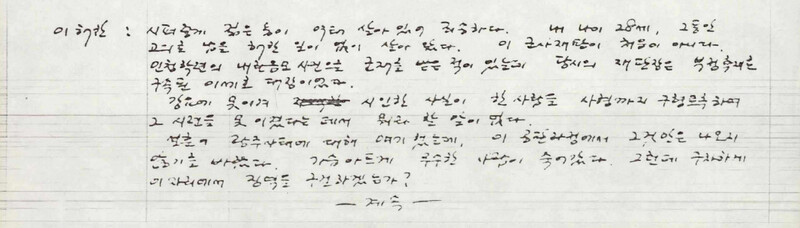 이해찬 : 시퍼렇게 젊은 놈이 여태 살아있어 죄송하다. 내 나이 28세, 그동안
고의로 남을 해한 일이 없이 살아 왔다. 이 군사재판이 처음이 아니다.
민청학련의 내란음모 사건으로 군재를 받은 적이 있는데 당시의 재판장은 부정축재로
구속된 이세호 대장이었다.
강요에 못이겨 시인한 사실이 한 사람을 사형까지 구형토록하여
그 시련을 못 이겼다는 데에서 뭐라 할 말이 없다.
전혀 광주사태에 대해 얘기했는데, 이 공판과정에서 그것만은 나오지
않기를 바랬다. 가슴아프게 무수한 사람이 죽어갔다. 그런데 구차하게
이 자리에서 징역을 구걸하겠는가?
— 계속 —